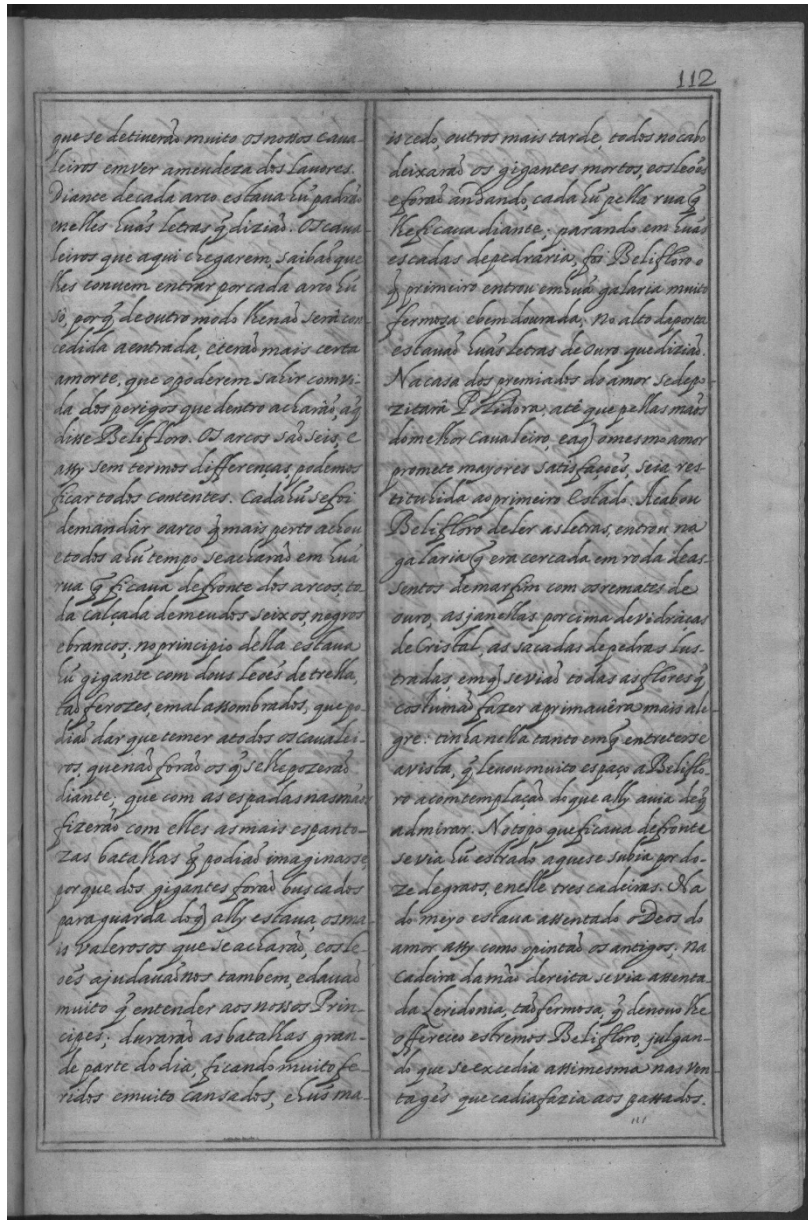 112
que se detiuerão muito os nossos caua-
leiros em ver ameudeza dos lauores.
Diante de cada arco estaua hũ padrão
enelles huãs letras q̃ diziaõ. Os caua-
leiros que aqui chegarem, saibaõ que
lhes conuem entrar por cada arco hũ
só, porq̃ de outro modo lhe naõ será con-
cedida aentrada, eteraõ mais certa
amorte, que opoderem sahir com vi-
da dos perigos que dentro acharaõ, aq̃
disse Belifloro. Os arcos saõ seis, e
assy sem termos differenças, podemos
ficar todos contentes. Cada hũ se foi
demandar oarco q̃ mais perto achou
etodos a hũ tempo se acharaõ em huã
rua q̃ ficaua defronte dos arcos, to-
da calçada demeudos seixos, negros
ebrancos, no principio della estaua
hũ gigante com dous leoẽs de trella,
taõ ferozes, emal assombrados, que po-
diaõ dar que temer atodos os caualei-
ros, que naõ foraõ os q̃ se lhe pozeraõ
diante; que com as espadas nas maõs
fizeraõ com elles as mais espanto-
zas batalhas q̃ podiaõ imaginarsse,
por que dos gigantes foraõ buscados
para guarda do q̃ ally estaua, os ma-
is valerosos que se acharaõ, eos le-
oẽs ajudauaõ nos tambem, edauaõ
muito q̃ entender aos nossos Prin-
cipes; duraraõ as batalhas gran-
de parte do dia, ficando muito fe-
ridos emuito cansados, ehũs ma-
is cedo, outros mais tarde, todos no cabo
deixaraõ os gigantes mortos, eos leoẽs
eforaõ andando, cada hũ pella rua q̃
lhe ficaua diante; parando em huãs
escadas depedraria, foi Belifloro o
q̃ primeiro entrou em huã galaria muito
fermosa ebem dourada; No alto daporta
estauaõ huãs letras de ouro que diziaõ.
Na casa dos premiados do amor se depo-
zitará Polidora, até que pellas maõs
do melhor caualeiro, eaq̃ omesmo amor
promete mayores satisfaçoẽs, seia res-
tituhida ao primeiro estado. Acabou
Belifloro deler as letras, entrou na
galaria q̃ era cercada em roda de as-
sentos de marfim com os remates de
ouro, as janellas por cima de vidraças
de Cristal, as sacadas de pedras lus-
tradas, em q̃ se viaõ todas as flores q̃
costumaõ fazer aprimauêra mais ale-
gre: tinha nella tanto em q̃ entreterse
avista, q̃ leuou muito espaço a Beliflo-
ro acomtemplaçaõ do que ally auia de q̃
admirar. No topo que ficaua defronte
se via hũ estrado aque se subia por do-
ze degraos, enelle tres cadeiras. Na
do meyo estaua assentado o Deos do
amor assy como opintaõ os antigos; na
cadeira da maõ dereita se via assenta-
da Leridonia, taõ fermosa, q̃ denouo lhe
offereceo estremos Belifloro, julgan-
do que se excedia assimesma nas ven-
tagẽs que cadia fazia aos passados.